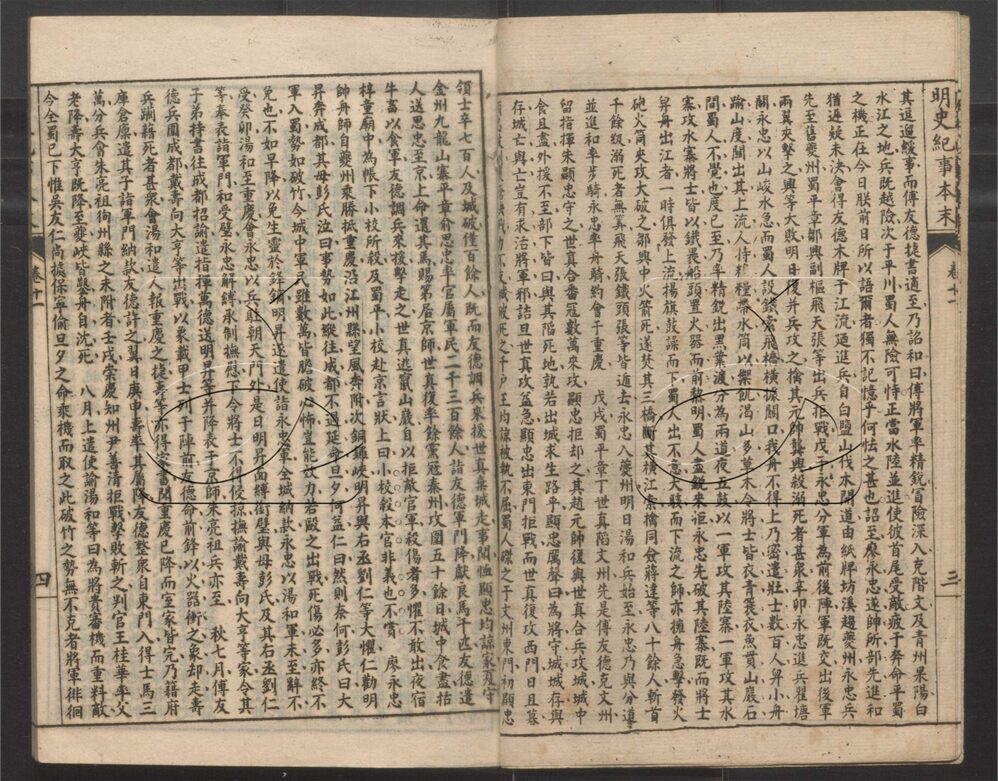 明史紀事本末
卷十一
三
其逗遛緩事而傅友德捷書適至乃詔和曰傅將軍率精銳冒險深入克階文及青州杲陽白
水江之地兵既越險次于平川蜀人無險可恃正當水陸並進使彼首尾受敵疲于奔命平蜀
之機正在今日朕前日所以語爾者獨不記憶乎何怯之甚也詔至廖永忠遂帥所部先進和
猶遲疑未決會得友德木牌于江流迺進兵自白鹽山伐木開道由紙牌坊溪趨夔州永忠兵
先至舊夔州蜀平章鄒興副樞飛天張等出兵拒戰戊子永忠分軍為前後陣軍既交出後軍
兩翼夾擊之興等大敗明日復并兵攻之擒其元帥龔興殺溺死者甚衆辛卯永忠進兵瞿塘
關永忠以山峻水急而蜀人設鐵索飛橋橫據關口我舟不得上乃密遣壯士數百人舁小舟
踰山度關出其上流人侍糗糧帶水筒以禦飢渴山多草木令將士皆衣青蓑衣魚貫山巖石
間蜀人不覺也度已至乃率精銳出黑葉渡分為兩道夜五鼓以一軍攻其陸寨一軍攻其水
寨攻水寨將士皆以鐵裹船頭置火器而前黎明蜀人盡銳來拒永忠先破其陸寨既而將士
舁舟出江者一時俱發上流揚旗鼓譟而下蜀人出不意大駭而下流之師亦擁舟急擊發火
砲火筒夾攻大破之鄒興中火箭死遂焚其三橋斷其橫江索擒同僉蔣達等八十餘人斬首
千餘級溺死者無算飛天張鐵頭張等皆遁去永忠入夔州明日湯和兵始至永忠乃與分道
並進和率步騎永忠率舟騎約會于重慶 戊戌蜀平章丁世真陷文州先是傅友德克文州
留指揮朱顯忠守之世真合番寇數萬來攻顯忠拒却之其趙元帥復與世真合兵攻城城中
食且盡外援不至部下皆曰與其陷死地就若出城求生路乎顯忠厲聲曰為將守城城存與
存城亡與亡豈有求活將軍邪詰旦世真攻益急顯忠出東門拒戰而世真復攻西門日且暮
王均諒被執不屈蜀人磔之于文州東門初顯忠
領士卒七百人及城破僅百餘人既而友德調兵來援世真棄城走事聞恤顯忠均諒家 守
金州九龍山寨平章俞思忠率官屬軍民二千三百餘人詣友德軍門降獻良馬千匹友德遣
人送思忠至京上命還其馬賜第居京師世真復率餘黨寇秦州攻圍五十餘日城中食盡括
牛畜以食軍友德調兵來援擊走之世真逃竄山巖自以拒敵官軍殺傷者多懼不敢出夜宿
梓童廟中為帳下小校所殺及蜀平小校赴京言狀上曰小校殺本官非義也不賞 廖永忠
帥舟師自夔州乘勝抵重慶沿江州縣望風奔附次銅鑼峽明昇與右丞劉仁等大懼仁勸明
昇奔成都其母彭氏泣曰事勢如此縱往成都不過延命旦夕何益仁曰然則奈何彭氏曰大
軍入蜀勢如破竹今城中軍民雖數萬皆膽破心怖豈能效力若毆之出戰死傷必多亦終不
免也不如早降以免生靈於鋒鏑明昇遂遣使詣永忠軍全城納款永忠以湯和軍未至辭不
受癸卯湯和至重慶會永忠以兵駐朝天門外是日明昇面縛銜璧與母彭氏及其右丞劉仁
等奉表詣軍門和受璧永忠解縛承制撫慰下令將士不得侵掠撫諭戴壽向大亨等家令其
子弟持書往成都招諭遣指揮萬德送明昇等并降表于京師朱亮祖兵亦至 秋七月傅友
德兵圍成都戴壽向大亨等出戰以象載甲士列于陣前友德命前鋒以火器衝之象却走壽
兵躪藉死者甚衆會湯和遣人報重慶之捷壽等亦得家書聞重慶已降而室家皆完乃籍府
庫倉廩遣其子詣軍門納款友德許之翼日庚申壽率其屬降友德整衆自東門入得士馬三
萬分兵會朱亮祖狥州縣之未附者壬戌崇慶知州尹善清拒戰擊敗斬之判官王桂華率父
老降壽大亨既降至夔峽皆鑿舟自沈死 八月上遣使諭湯和等曰為將貴審機而重料敵
今全蜀已下惟吳友仁尚據保寧偷旦夕之命乘機而取之此破竹之勢無不克者將軍徘徊
卷十一
四